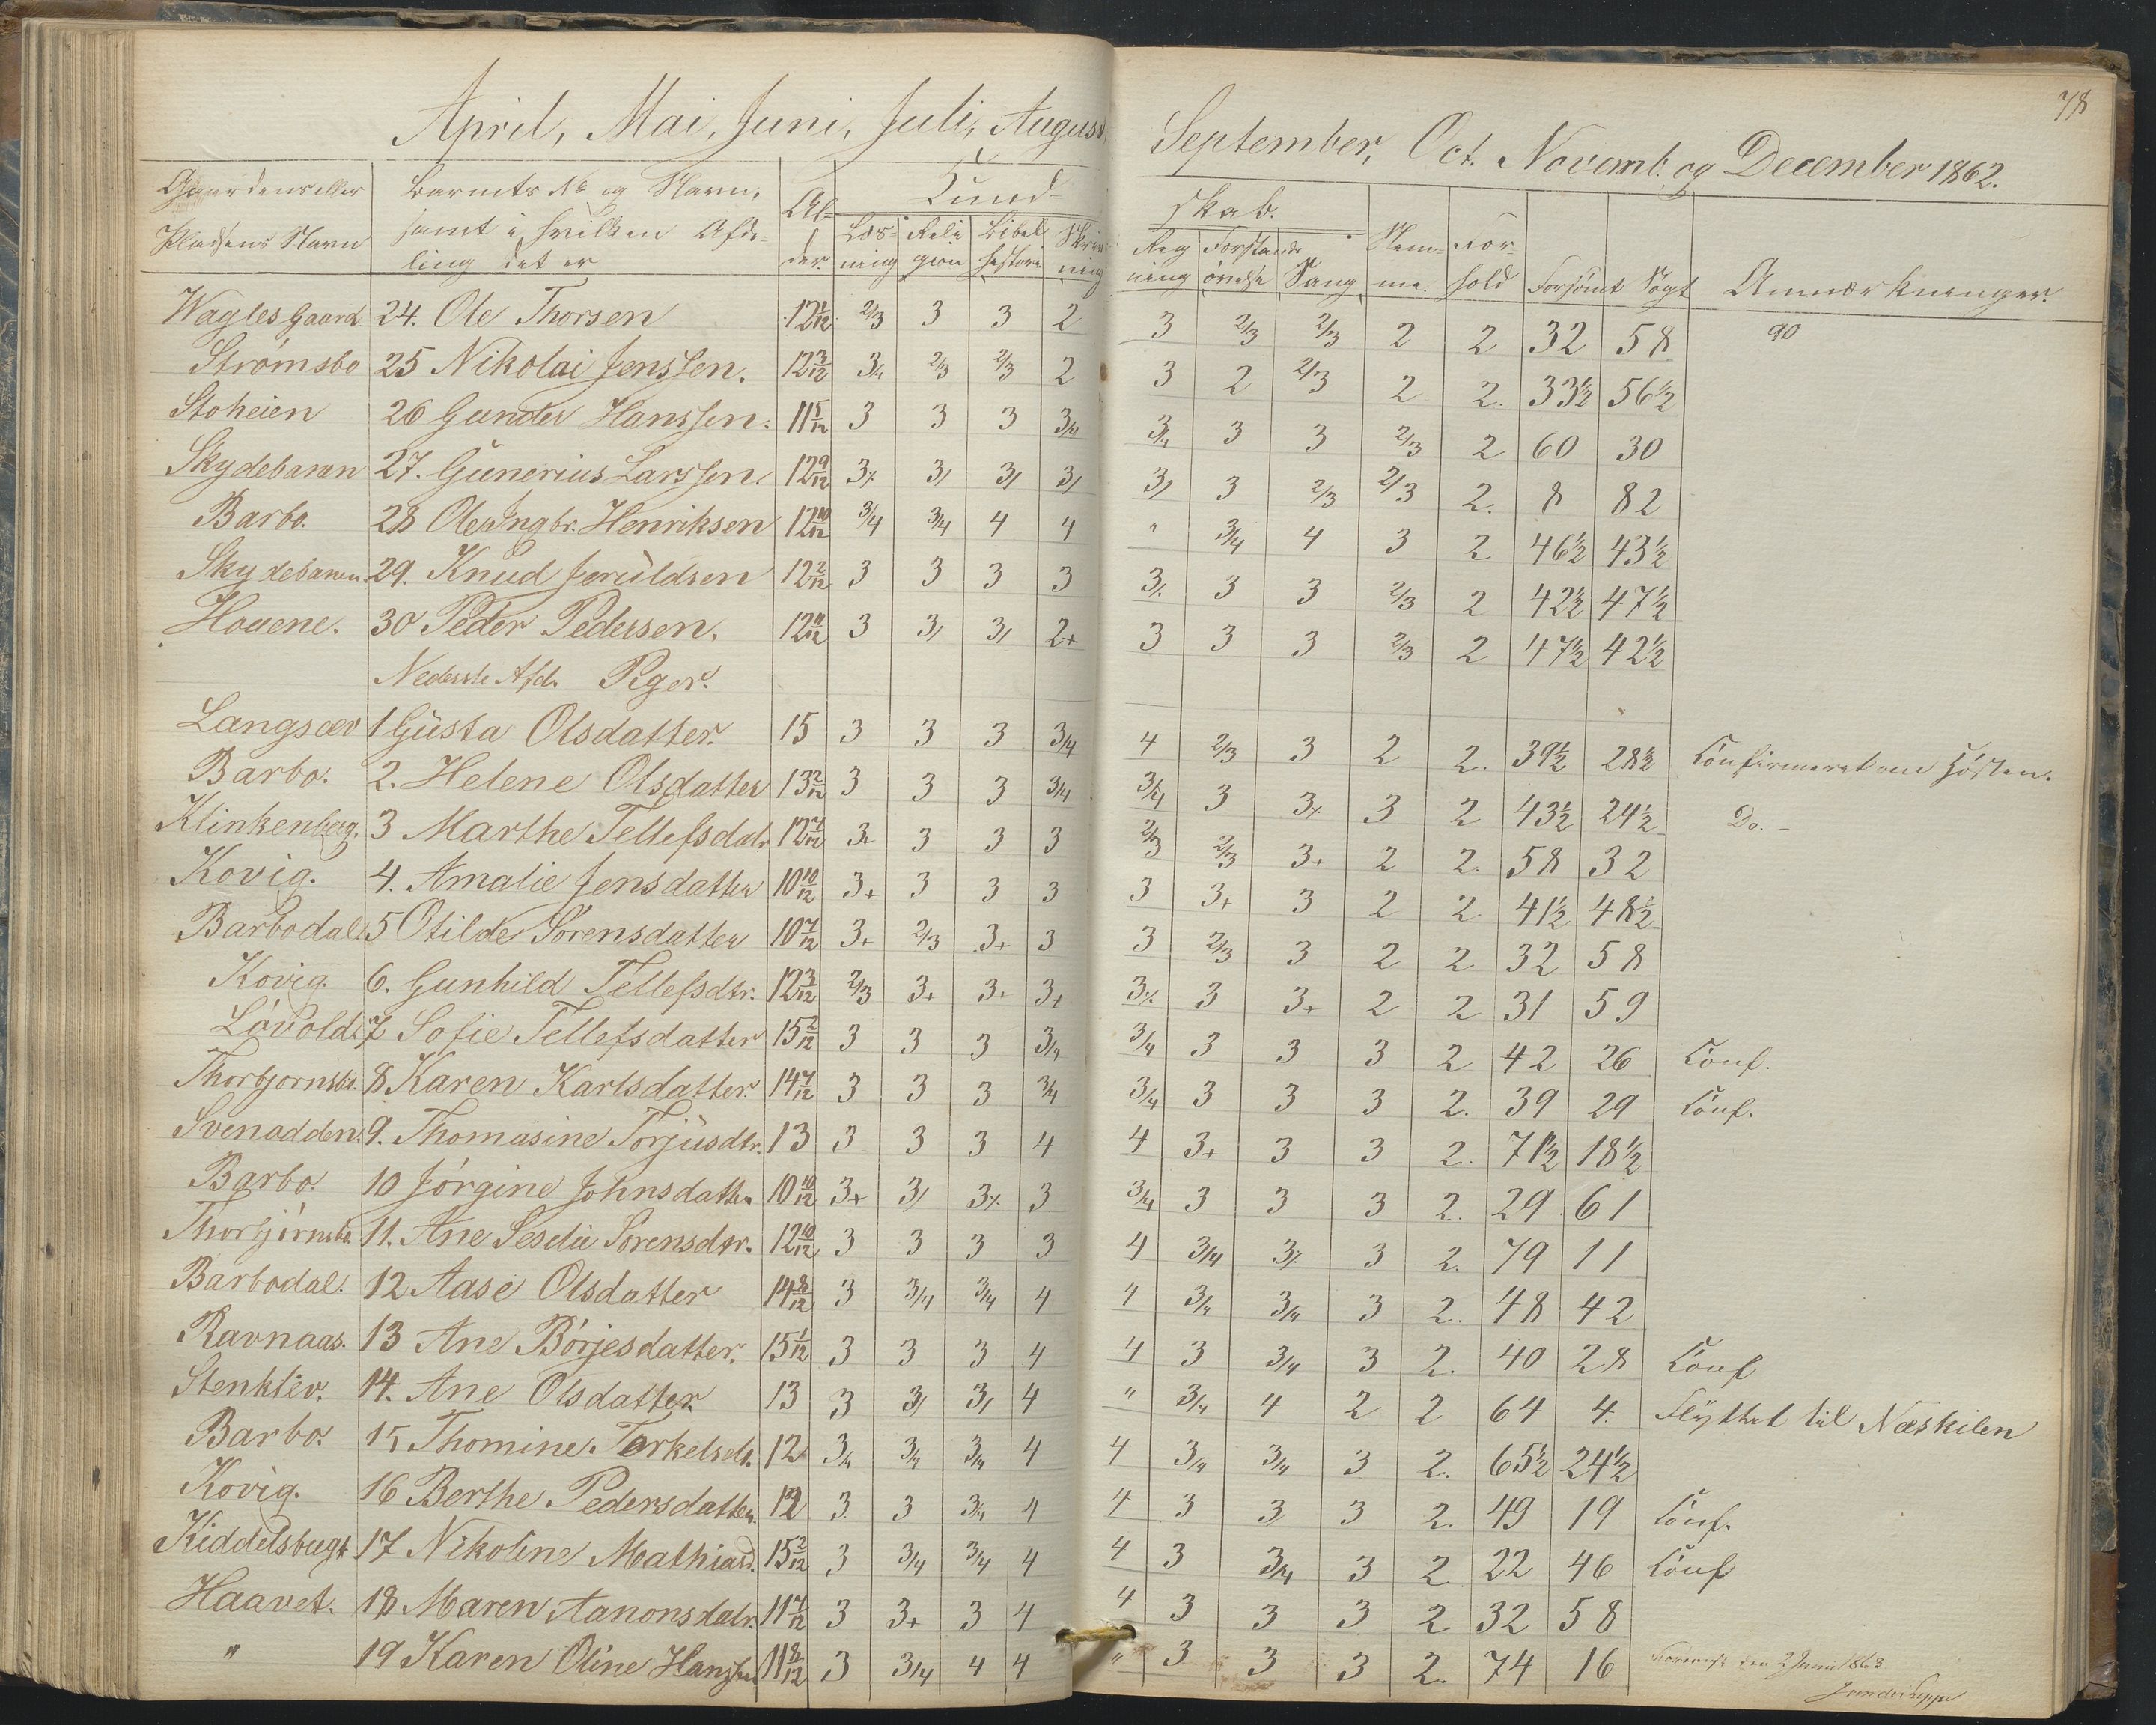 78
April, Mai, Juni, Juli, August September, Oct. Novemb. og December 1862.
Gaardens eller Barnets No og Navn, Al- Kund- skab.
Pladsens Navn samt i hvilken Afde- der. Læs- Reli Bibel Skriv- Reg Forstands Nem- For-
ling det er ning gion historie ning ning øvelse Sang me. hold Forsømt Søgt Anmærkninger.
Wagles gaard 24. Ole Thorsen 12 1/12 2/3 3 3 2 3 2/3 2/3 2 2 32 58 90
Strømsbo 25 Nikolai Jenssen. 12 3/12 3/4 2/3 2/3 2 3 2 2/3 2 2. 33½ 56½
Stoheien 26 Gunder Hanssen. 11 5/12 3 3 3 3/4 3/4 3 3 2/3 2 60 30
Skydebanen 27. Gunerius Larssen. 12 9/12 3⁒ 3/ 3/ 3/ 3/ 3 2/3 2/3 2. 8 82
Barbo. 28 Ole Ingbr. Henriksen 12 10/12 3/4 3/4 4 4 " 3/4 4 3 2 46½ 43½
Skydebanen. 29. Knud Jeruldsen 12 2/12 3 3 3 3 3⁒ 3 3 2/3 2 42½ 47½
Houene. 30 Peder Pedersen. 12 11/12 3 3/ 3/ 2+ 3 3 3 2/3 2 47½ 42½
Nederste Afd. Piger.
Langsæv 1 Gusta Olsdatter. 15 3 3 3 3/4 4 2/3 3 2 2. 39½ 28½ Confirmeret om Høsten.
Barbo. 2. Helene Olsdatter 13 2/12 3 3 3 3/4 3/4 3 3⁒ 3 2 43½ 24½ Do. -
Klinkenberg. 3 Marthe Tellefsdatr 12 7/12 3+ 3 3 3 2/3 2/3 3+ 2 2. 58 32
Kovig. 4. Amalie Jensdatter 10 10/12 3+ 3 3 3 3 3+ 3 2 2 41½ 48½
Barbodal. 5 Otilde Sørensdatter 10 7/12 3+ 2/3 3+ 3 3 2/3 3 2 2 32 58
Kovig. 6. Gunhild Tellefsdtr. 12 3/12 2/3 3+ 3+ 3+ 3⁒ 3 3+ 2 2 31 59
Løvold. 7 Sofie Tellefsdatter 15 2/12 3 3 3 3/4 3/4 3 3 3 2 42 26 Conf.
Thorbjørnsbo. 8 Karen Karlsdatter. 14 7/12 3 3 3 3/4 3/4 3 3 3 2. 39 29 Conf.
Svenadden. 9. Thomasine Torjusdtr. 13 3 3 3 4 4 3+ 3 3 2. 71½ 18½
Barbo. 10 Jørgine Johnsdatter 10 10/12 3+ 3/ 3⁒ 3 3/4 3 3 3 2. 29 61
Thorbjørnsbo. 11. Ane Seselie Sørensdtr. 12 10/12 3 3 3 3 4 3/4 3⁒ 3 2. 79 11
Barbodal. 12 Aase Olsdatter 14 8/12 3 3/4 3/4 4 4 3/4 3/4 3 2. 48 42
Ravnaas. 13 Ane Børjesdatter. 15 1/12 3 3 3 4 4 3 3/4 3 2. 40 28 Conf
Stenkliv. 14. Ane Olsdatter. 13 3 3/ 3/ 4 " 3/4 4 2 2 64 4. Flyttet til Næskilen
Barbo. 15 Thomine Torkelsdt. 12 3/4 3/4 3/4 4 4 3/4 3/4 3 2. 65½ 24½
Kovig. 16 Berthe Pedersdatter. 12 3. 3 3/4 4 4 3 3/ 3 2. 49 19 Conf.
Kiddelsbugt 17 Nikoline Mathiasd. 15 2/12 3 3/4 3/4 4 4 3 3/4 3 2 22 46 Conf
Haavet. 18 Maren Aanonsdatr. 11 7/12 3 3+ 3 4 4 3 3 3 2 32 58
" 19 Karen Oline Hanssen 11 8/12 3 3/4 4 4 " 3 3 3 2. 74 16
den 2 Juni 1863